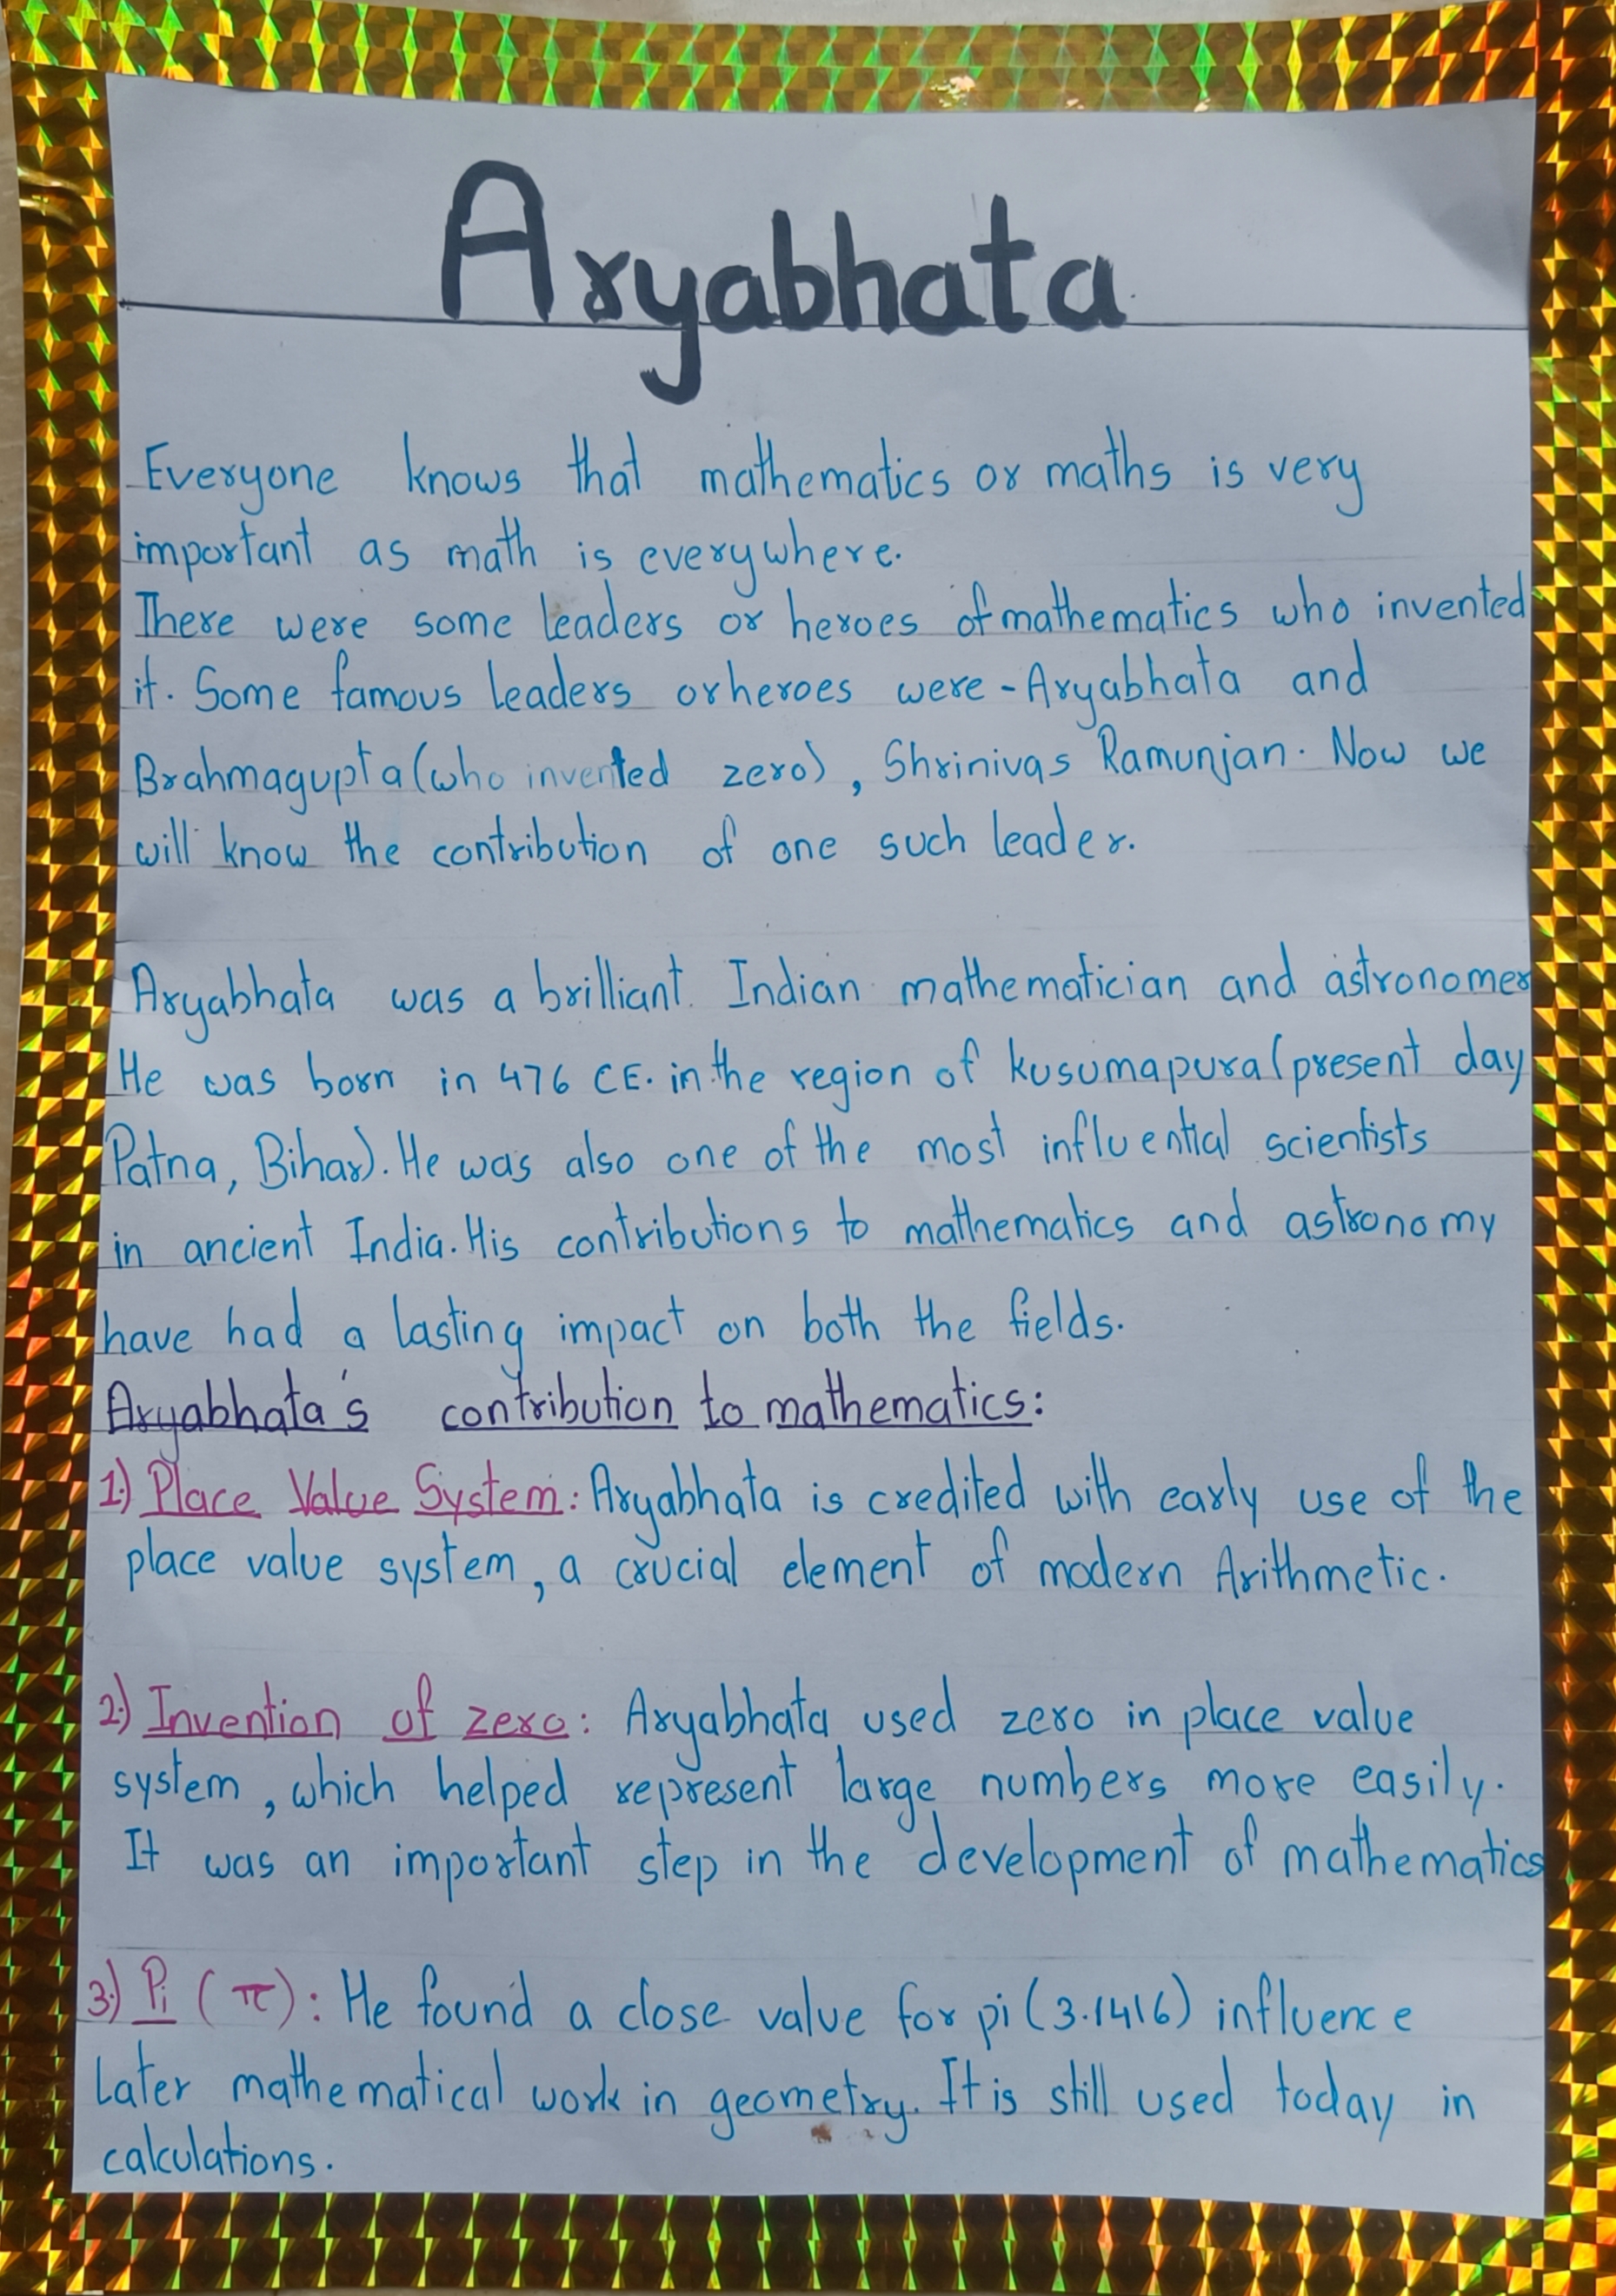 Aryabhata
Everyone knows that mathematics or maths is very
important as math is everywhere.
There were some leaders or heroes of mathematics who invented
it. Some famous leaders or heroes were - Aryabhata and
Brahmagupta (who invented zero), Shrinivas Ramunjan. Now we
will know the contribution of one such leader.
Aryabhata was a brilliant Indian mathematician and astronomer
He was born in 476 CE. in the region of kusumapura (present day
Patna, Bihar). He was also one of the most influential scientists
in ancient India. His contributions to mathematics and astronomy
have had a lasting impact on both the fields.
Aryabhata's contribution to mathematics:
1) Place Value System: Aryabhata is credited with early use of the
place value system, a crucial element of modern Arithmetic.
2) Invention of zero: Aryabhata used zero in place value
system, which helped represent large numbers more easily.
It was an important step in the development of mathematics
3) Pi (π): He found a close value for pi (3.1416) influence
later mathematical work in geometry. It is still used today in
calculations.